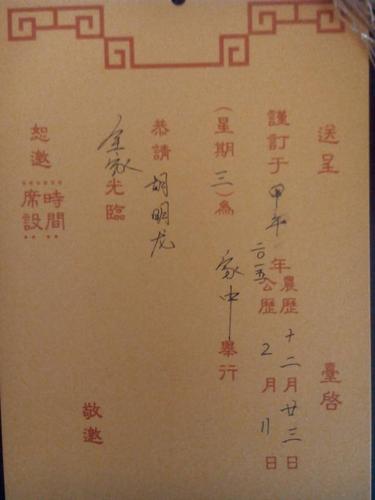 送呈 臺啓
謹訂于 甲午 年 農歷 十二月廿三日
二0一五 公歷 2月11日
(星期三)為 家中 舉行
恭請 胡明龙
全家光臨
敬邀
恕邀
時間
席設